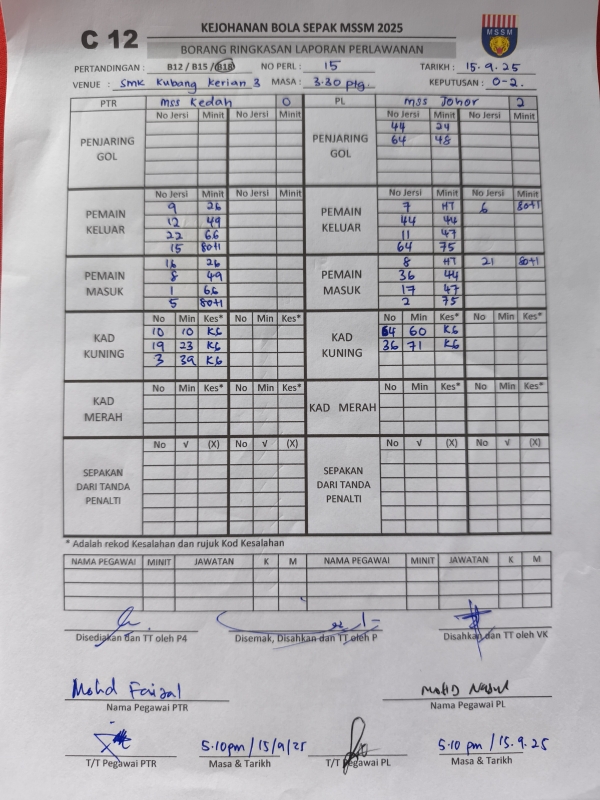 C 12
KEJOHANAN BOLA SEPAK MSSM 2025
BORANG RINGKASAN LAPORAN PERLAWANAN
MSSM
PERTANDINGAN : B12 / B15 / B18 NO PERL : 15 TARIKH : 15.9.25
VENUE : SMK Kubang Kerian 3 MASA : 3.30 ptg. KEPUTUSAN : 0-2.
PTR MSS Kedah 0 PL MSS Johor 2
PENJARING GOL No Jersi Minit No Jersi Minit PENJARING GOL No Jersi Minit No Jersi Minit
44 24
64 48
PEMAIN KELUAR No Jersi Minit No Jersi Minit PEMAIN KELUAR No Jersi Minit No Jersi Minit
9 26 7 HT 6 80+1
12 49 44 44
22 66 11 47
15 80+1 64 75
PEMAIN MASUK PEMAIN MASUK
16 26 8 HT 21 80+1
8 49 36 44
1 66 17 47
5 80+1 2 75
KAD KUNING No Min Kes* No Min Kes* KAD KUNING No Min Kes* No Min Kes*
10 10 K6 64 60 K6
19 23 K6 36 71 K6
3 39 K6
KAD MERAH No Min Kes* No Min Kes* KAD MERAH No Min Kes* No Min Kes*
SEPAKAN DARI TANDA PENALTI No √ (X) No √ (X) SEPAKAN DARI TANDA PENALTI No √ (X) No √ (X)
* Adalah rekod Kesalahan dan rujuk Kod Kesalahan
NAMA PEGAWAI MINIT JAWATAN K M NAMA PEGAWAI MINIT JAWATAN K M
Disediakan dan TT oleh P4 Disemak, Disahkan dan TT oleh P Disahkan dan TT oleh VK
Mohd Faizal
Nama Pegawai PTR Nama Pegawai PL
5.10pm / 15/9/25 5.10 pm / 15.9.25
T/T Pegawai PTR Masa & Tarikh T/T Pegawai PL Masa & Tarikh